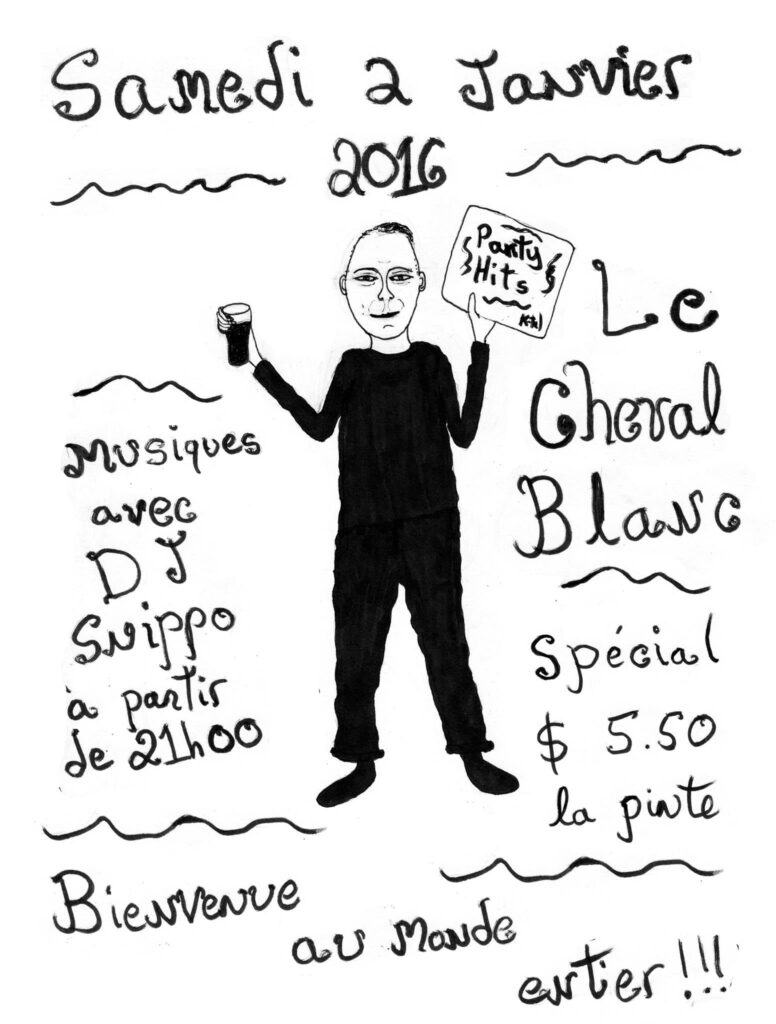 Samedi 2 Janvier
2016
Party
Hits
Le
Cheval
Blanc
Musiques
avec
DJ
Snippo
à partir
de 21h00
Spécial
$ 5.50
la pinte
Bienvenue
au Monde
entier!!!